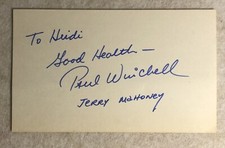 To Heidi
Good Health —
Paul Winchell
JERRY MAHONEY